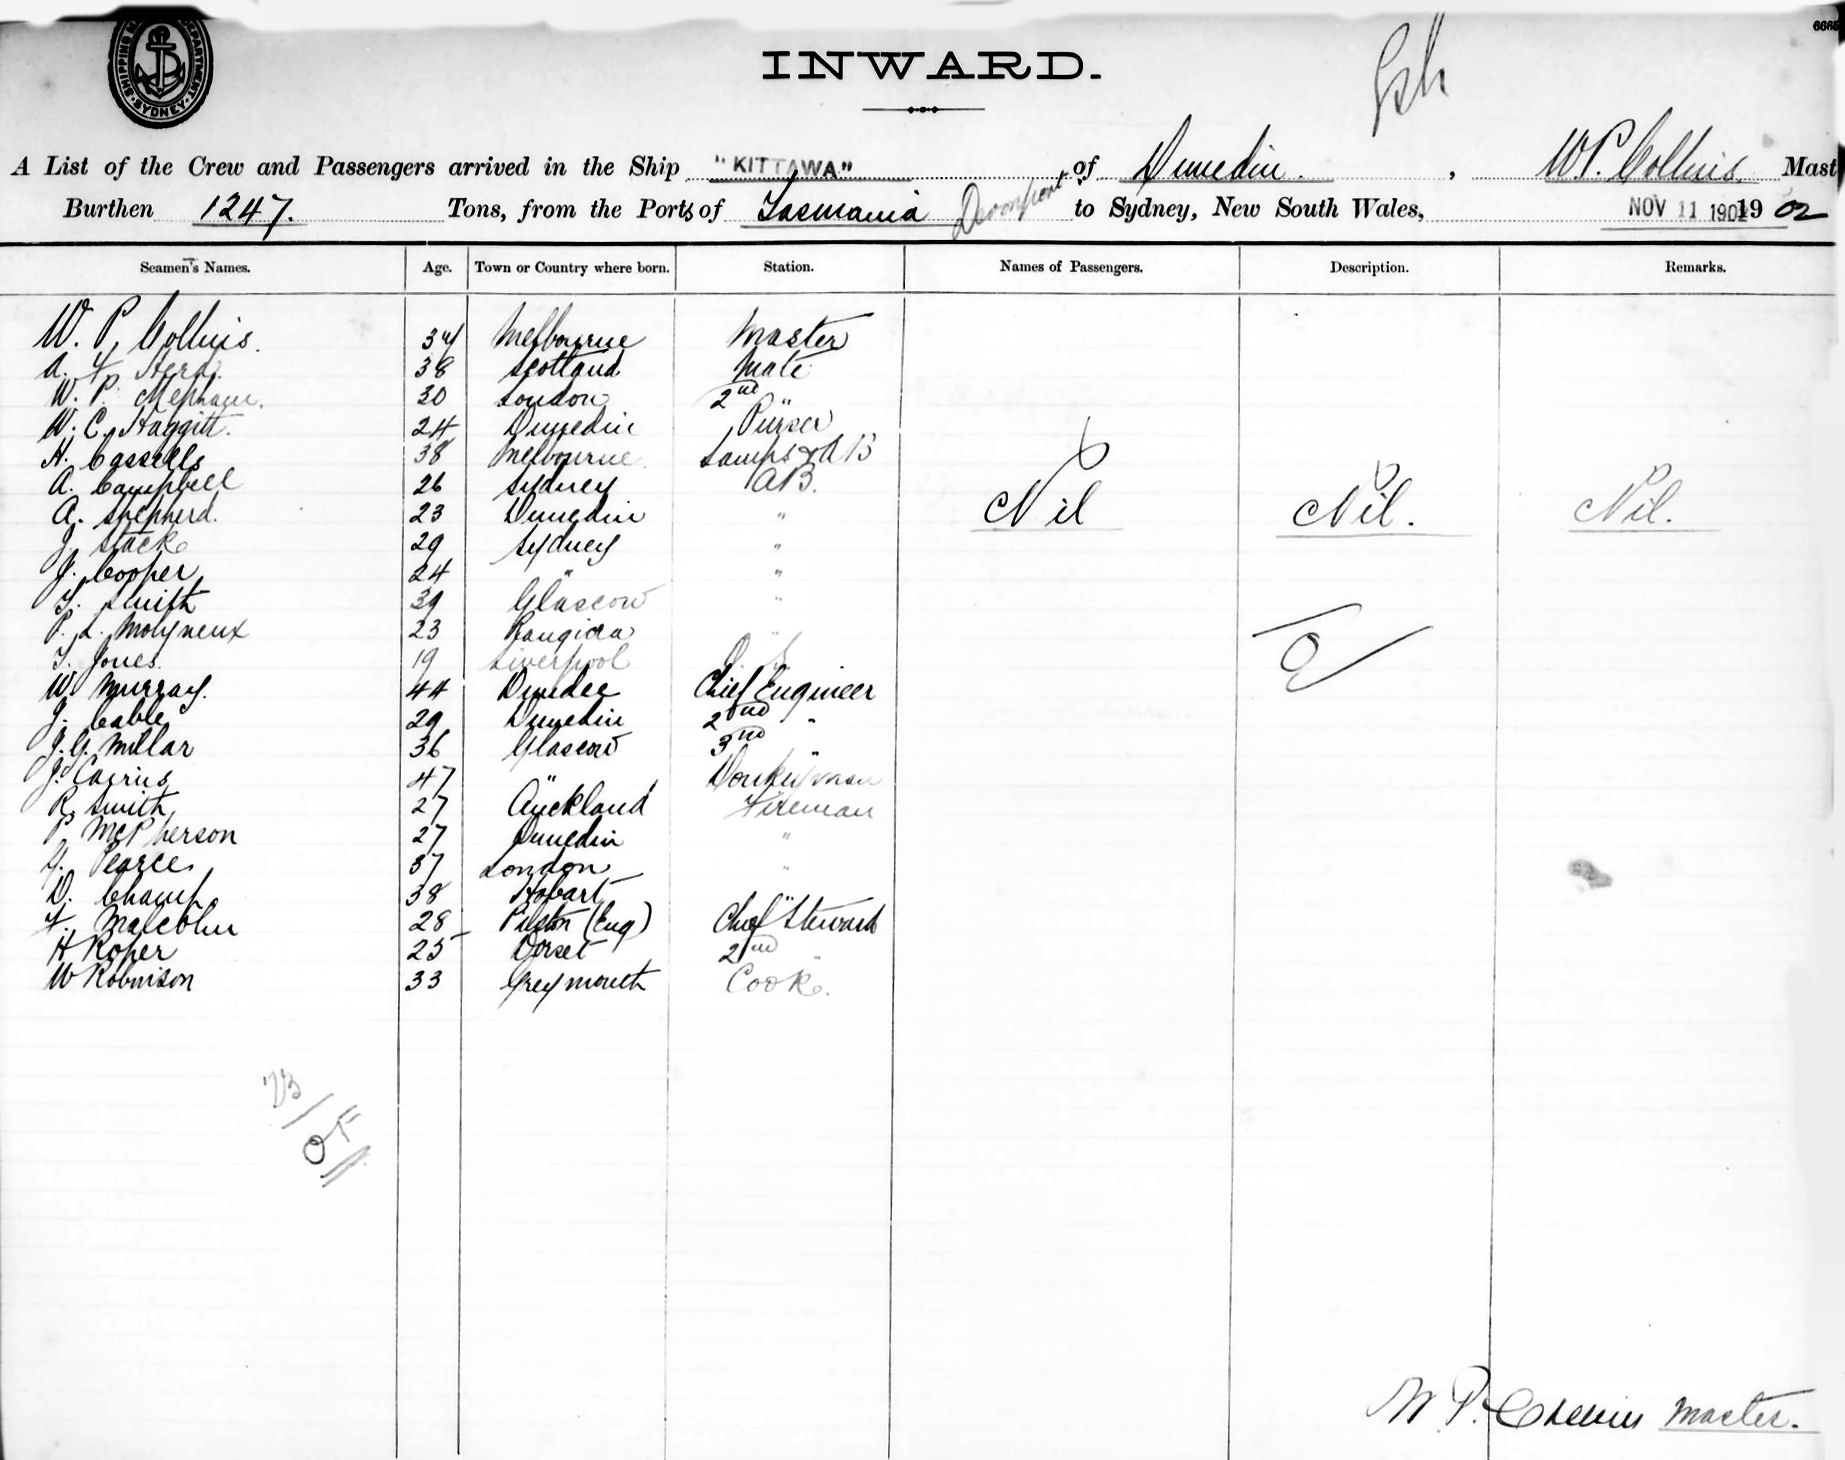 6665
SHIPPING DEPARTMENT SYDNEY
INWARD.
A List of the Crew and Passengers arrived in the Ship "KITTAWA" of Dunedin. , W. P. Collins Mast
Burthen 1247. Tons, from the Ports of Tasmania Devonport to Sydney, New South Wales, NOV 11 1902 1902
Seamen's Names. Age. Town or Country where born. Station. Names of Passengers. Description. Remarks.
W. P. Collins. 34 Melbourne Master
A. F. Herd. 38 Scotland Mate
W. P. Mepham. 30 London 2nd "
W. C. Haggitt. 24 Dunedin Purser
H. Cassells 38 Melbourne. Lamps & AB
A. Campbell 26 Sydney AB.
A. Shepherd. 23 Dunedin " Nil Nil. Nil.
J. Stack 29 Sydney "
J. Cooper 24 " "
T. Smith 39 Glascow "
P. L. Molyneux 23 Rangiora "
T. Jones. 19 Liverpool O. S.
W. Murray. 44 Dundee Chief Engineer
J. Cable 29 Dunedin 2nd "
J. G. Millar 36 Glascow 3rd "
J. Cairns 47 " Donkeyman
R. Smith 27 Auckland Fireman
P. McPherson 27 Dunedin "
Pearce 37 London "
D. Champ 38 Hobart "
F. Malcolm 28 Pilston (Eng) Chief Steward
H Roper 25 Dorset 2nd "
W Robinson 33 Greymouth Cook.
23/
W. P. Collins Master.